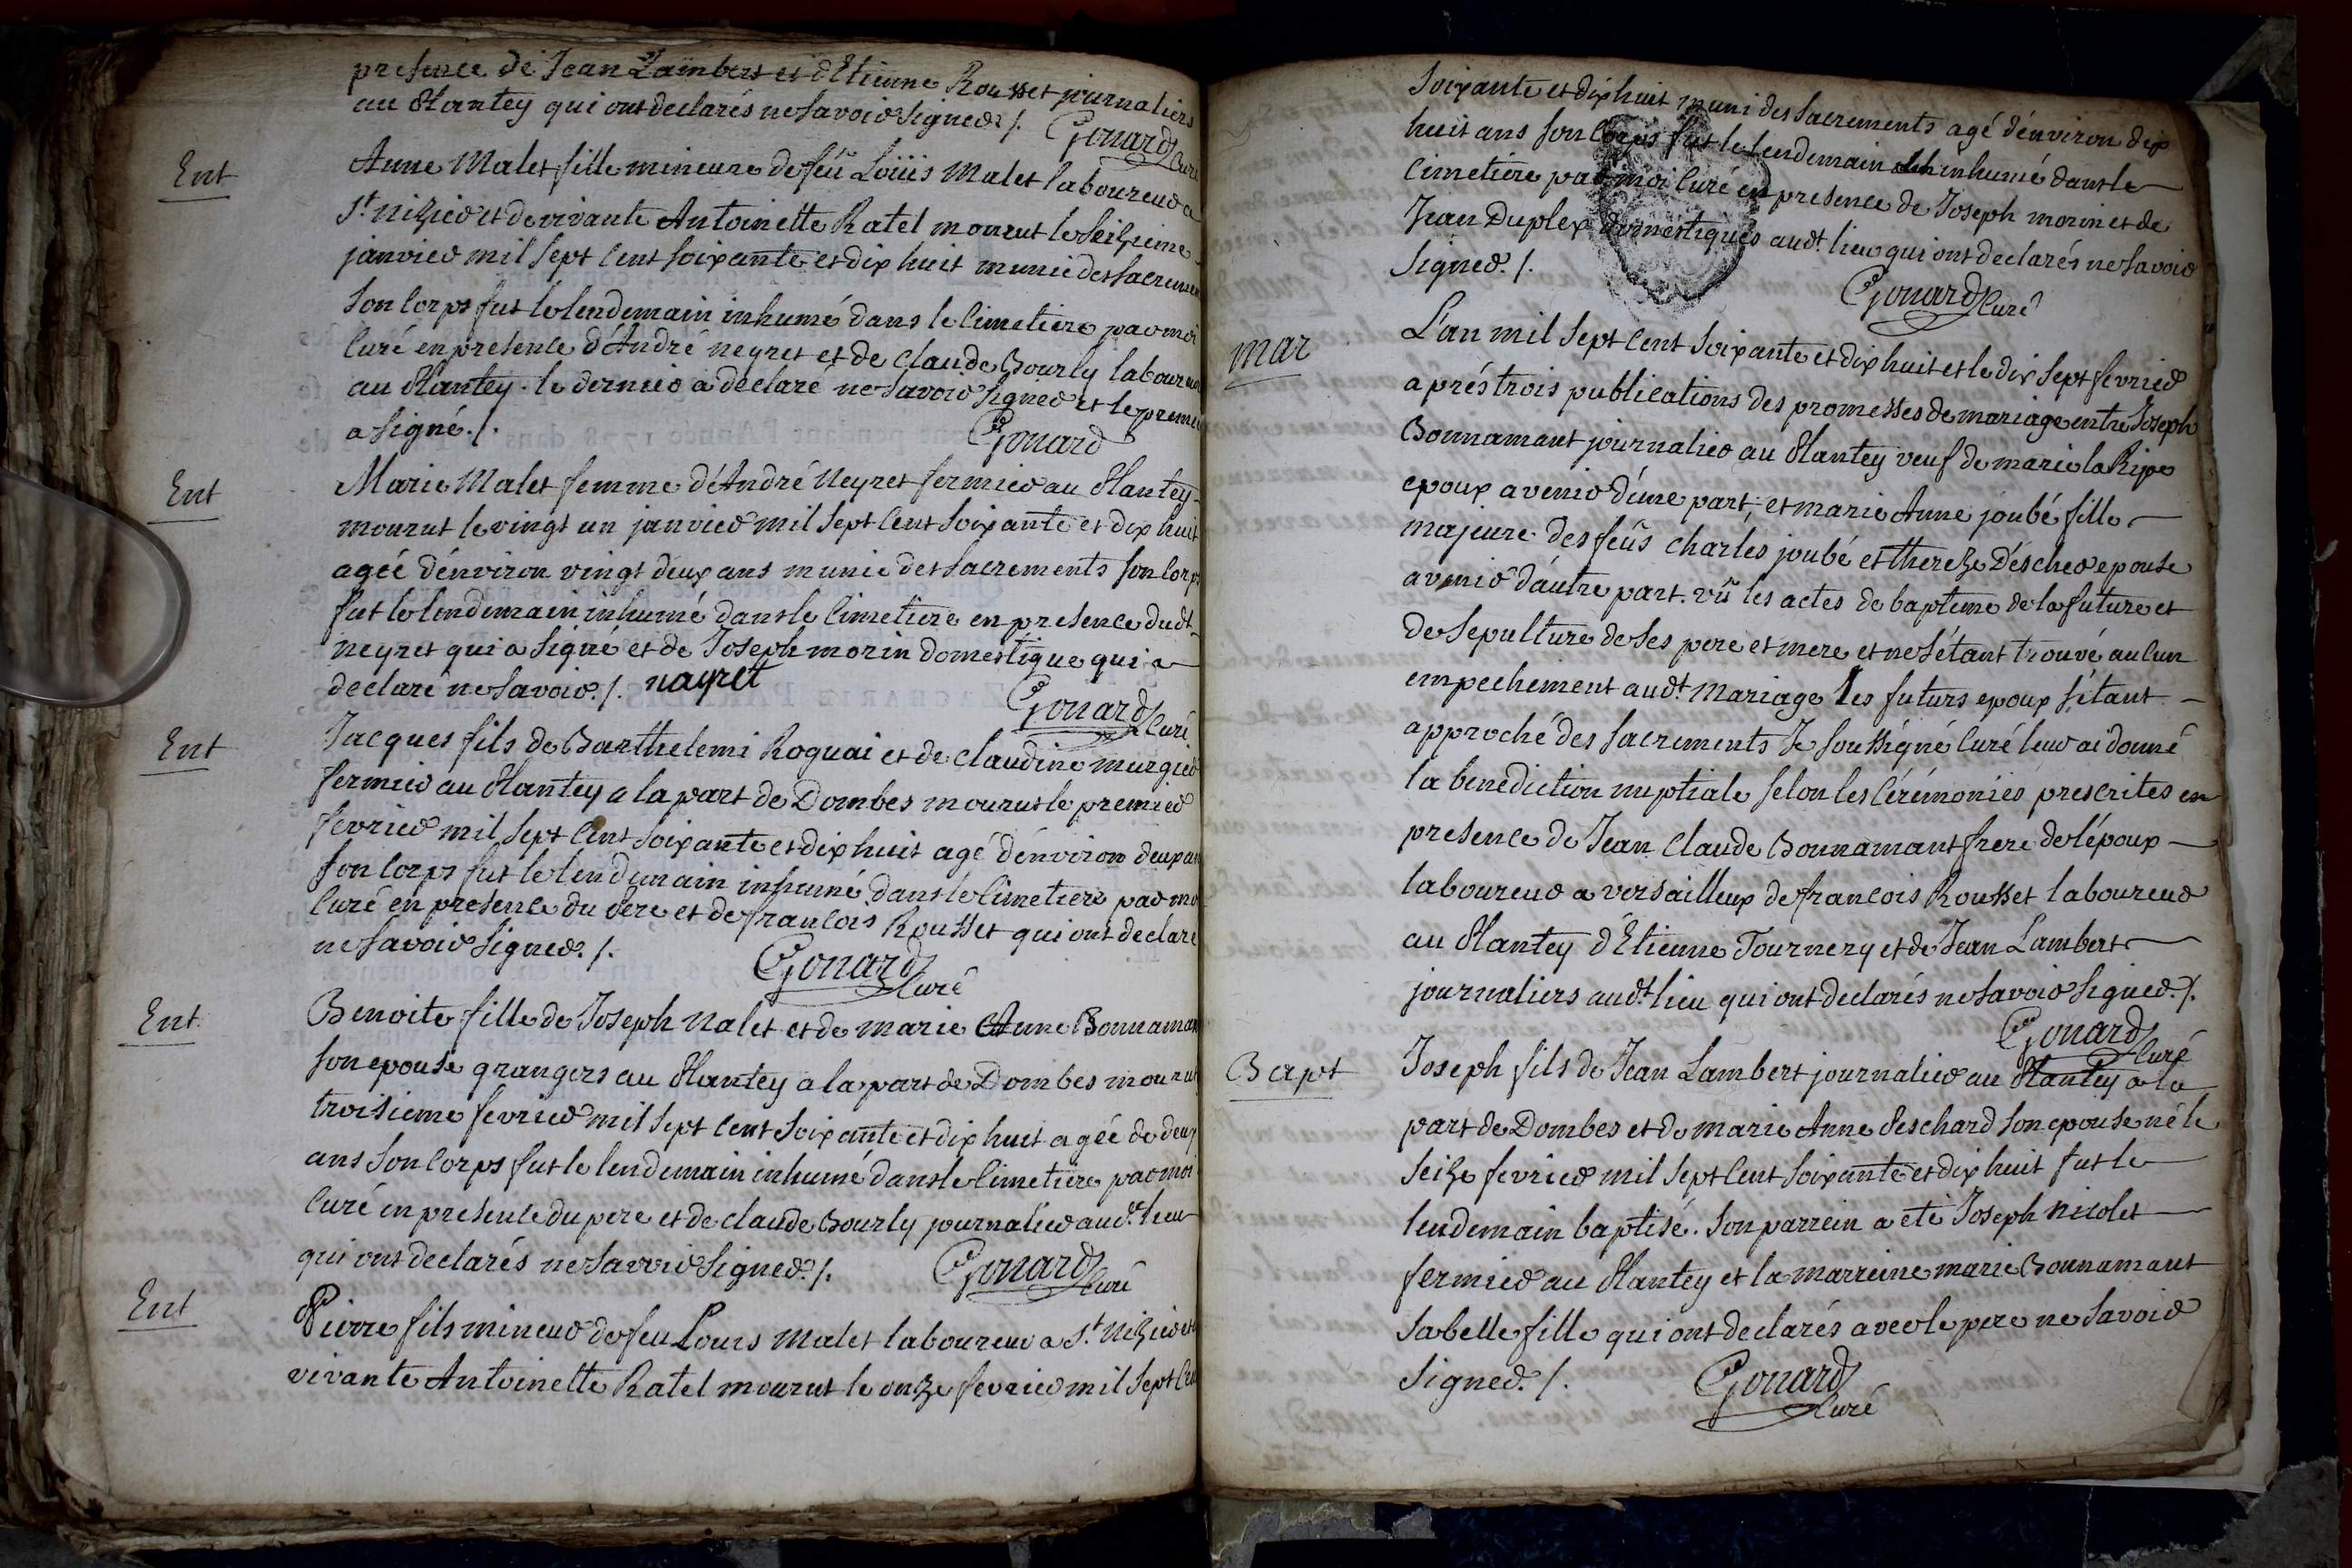 presence de Jean Lambert et d'Etienne Rousset journaliers
au Plantey qui ont declarés ne savoir signer ./.
Gouard Curé
Ent
Anne Malet fille mineure de feû Loüis Malet laboureur a
St. Nizier et de vivante Antoinette Ratel mourut le seizieme
janvier mil sept cent soixante et dix huit munie des sacremen
son corps fut le lendemain inhumé dans le cimetiere par moi
curé en presence d'André neyret et de claude Bourly laboureur
au Plantey. le dernier a declaré ne savoir signer et le premier
a signé ./.
Gouard
Ent
Marie Malet femme d'André Neyret fermier au Plantey
mourut le vingt un janvier mil sept cent soixante et dix huit
agée d'environ vingt deux ans munie des sacrements son corps
fut le lendemain inhumé dans le cimetiere en presence dudt
neyret qui a signé et de Joseph morin domestique qui a
declaré ne savoir ./. nayret
Gouard Curé
Ent
Jacques fils de Barthelemi Roguai et de claudine murgier
fermier au Plantey a la part de Dombes mourut le premier
fevrier mil sept cent soixante et dix huit agé d'environ deux ans
son corps fut le lendemain inhumé dans le cimetiere par moi
curé en presence du pere et de francois Rousset qui ont declaré
ne savoir signer ./.
Gouard
Curé
Ent
Benoite fille de Joseph Nalet et de marie Anne Bonnaman
son epouse grangers au Plantey a la part de Dombes mourut
troisieme fevrier mil sept cent soixante et dix huit agée de deux
ans son corps fut le lendemain inhumé dans le cimetiere par moi
curé en presence du pere et de claude Bourly journalier audt. lieu
qui ont declarés ne savoir signer ./.
Gouard
Curé
Ent
Pierre fils mineur de feu Louis Malet laboureur a St. Nizier et
vivante Antoinette Ratel mourut le onze fevrier mil sept cen
soixante et dix huit muni des sacrements agé d'environ dix
huit ans son corps fut le lendemain inhumé dans le
cimetiere par moi curé en presence de Joseph morin et de
Jean Duplex domestiques audt. lieu qui ont declarés ne savoir
signer ./.
Gouard Curé
mar
L'an mil sept cent soixante et dix huit et le dix sept fevrier
aprés trois publications des promesses de mariage entre Joseph
Bonnamant journalier au Plantey veuf de marie la Ripe
epoux a venir d'une part; et marie Anne joubé fille
majeure des feûs charles joubé et thereze Déscher epouse
a venir d'autre part. vû les actes de baptême de la future et
de sepulture de ses pere et mere et ne s'étant trouvé aucun
empechement audt. mariage les futurs epoux s'étant
approché des sacrements Je soussigné curé leur ai donné
la benediction nuptiale selon les cérémonies prescrites en
presence de Jean claude Bonnamant frere de l'époux
laboureur a versailleux de francois Rousset laboureur
au Plantey d'Etienne Tournery et de Jean Lambert
journaliers audt. lieu qui ont declarés ne savoir signer ./.
Gouard
Curé
Bapt
Joseph fils de Jean Lambert journalier au Plantey a la
part de Dombes et de marie Anne deschard son epouse né le
seize fevrier mil sept cent soixante et dix huit fut le
lendemain baptisé. son parrein a eté Joseph nicolet
fermier au Plantey et la marreine marie Bonnamant
sa belle fille qui ont declarés avec le pere ne savoir
signer ./.
Gouard
Curé